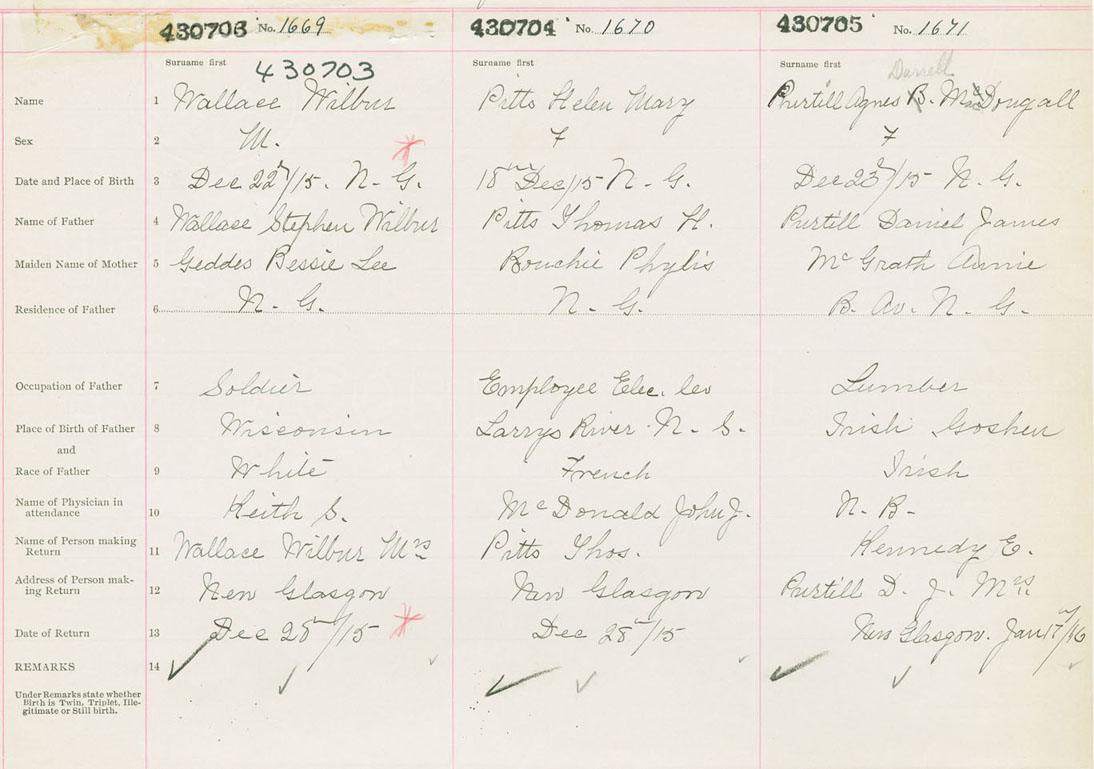 430703 No. 1669 430704 No. 1670 430705 No. 1671
Surname first 430703 Surname first Surname first Darrell
Name 1 Wallace Wilbur Pitts Helen Mary Purtill Agnes B. MacDougall
Sex 2 M. F F
Date and Place of Birth 3 Dec 22nd/15. N. G. 18th Dec/15 N. G. Dec 23d/15 N. G.
Name of Father 4 Wallace Stephen Wilbur Pitts Thomas H. Purtill Daniel James
Maiden Name of Mother 5 Geddes Bessie Lee Bouchie Phylis McGrath Annie
Residence of Father 6 N. G. N. G. B. Av. N. G.
Occupation of Father 7 Soldier Employee Elec. Lumber
Place of Birth of Father 8 Wisconsin Larrys River N. S. Irish Goshen
and
Race of Father 9 White French Irish
Name of Physician in
attendance 10 Keith S. McDonald John J. N. B.
Name of Person making
Return 11 Wallace Wilbur Mrs Pitts Thos. Kennedy E.
Address of Person mak-
ing Return 12 New Glasgow New Glasgow Purtill D. J. Mrs
Date of Return 13 Dec 28/15 Dec 28/15 New Glasgow. Jan 17/16
REMARKS 14
Under Remarks state whether
Birth is Twin, Triplet, Ille-
gitimate or Still birth.